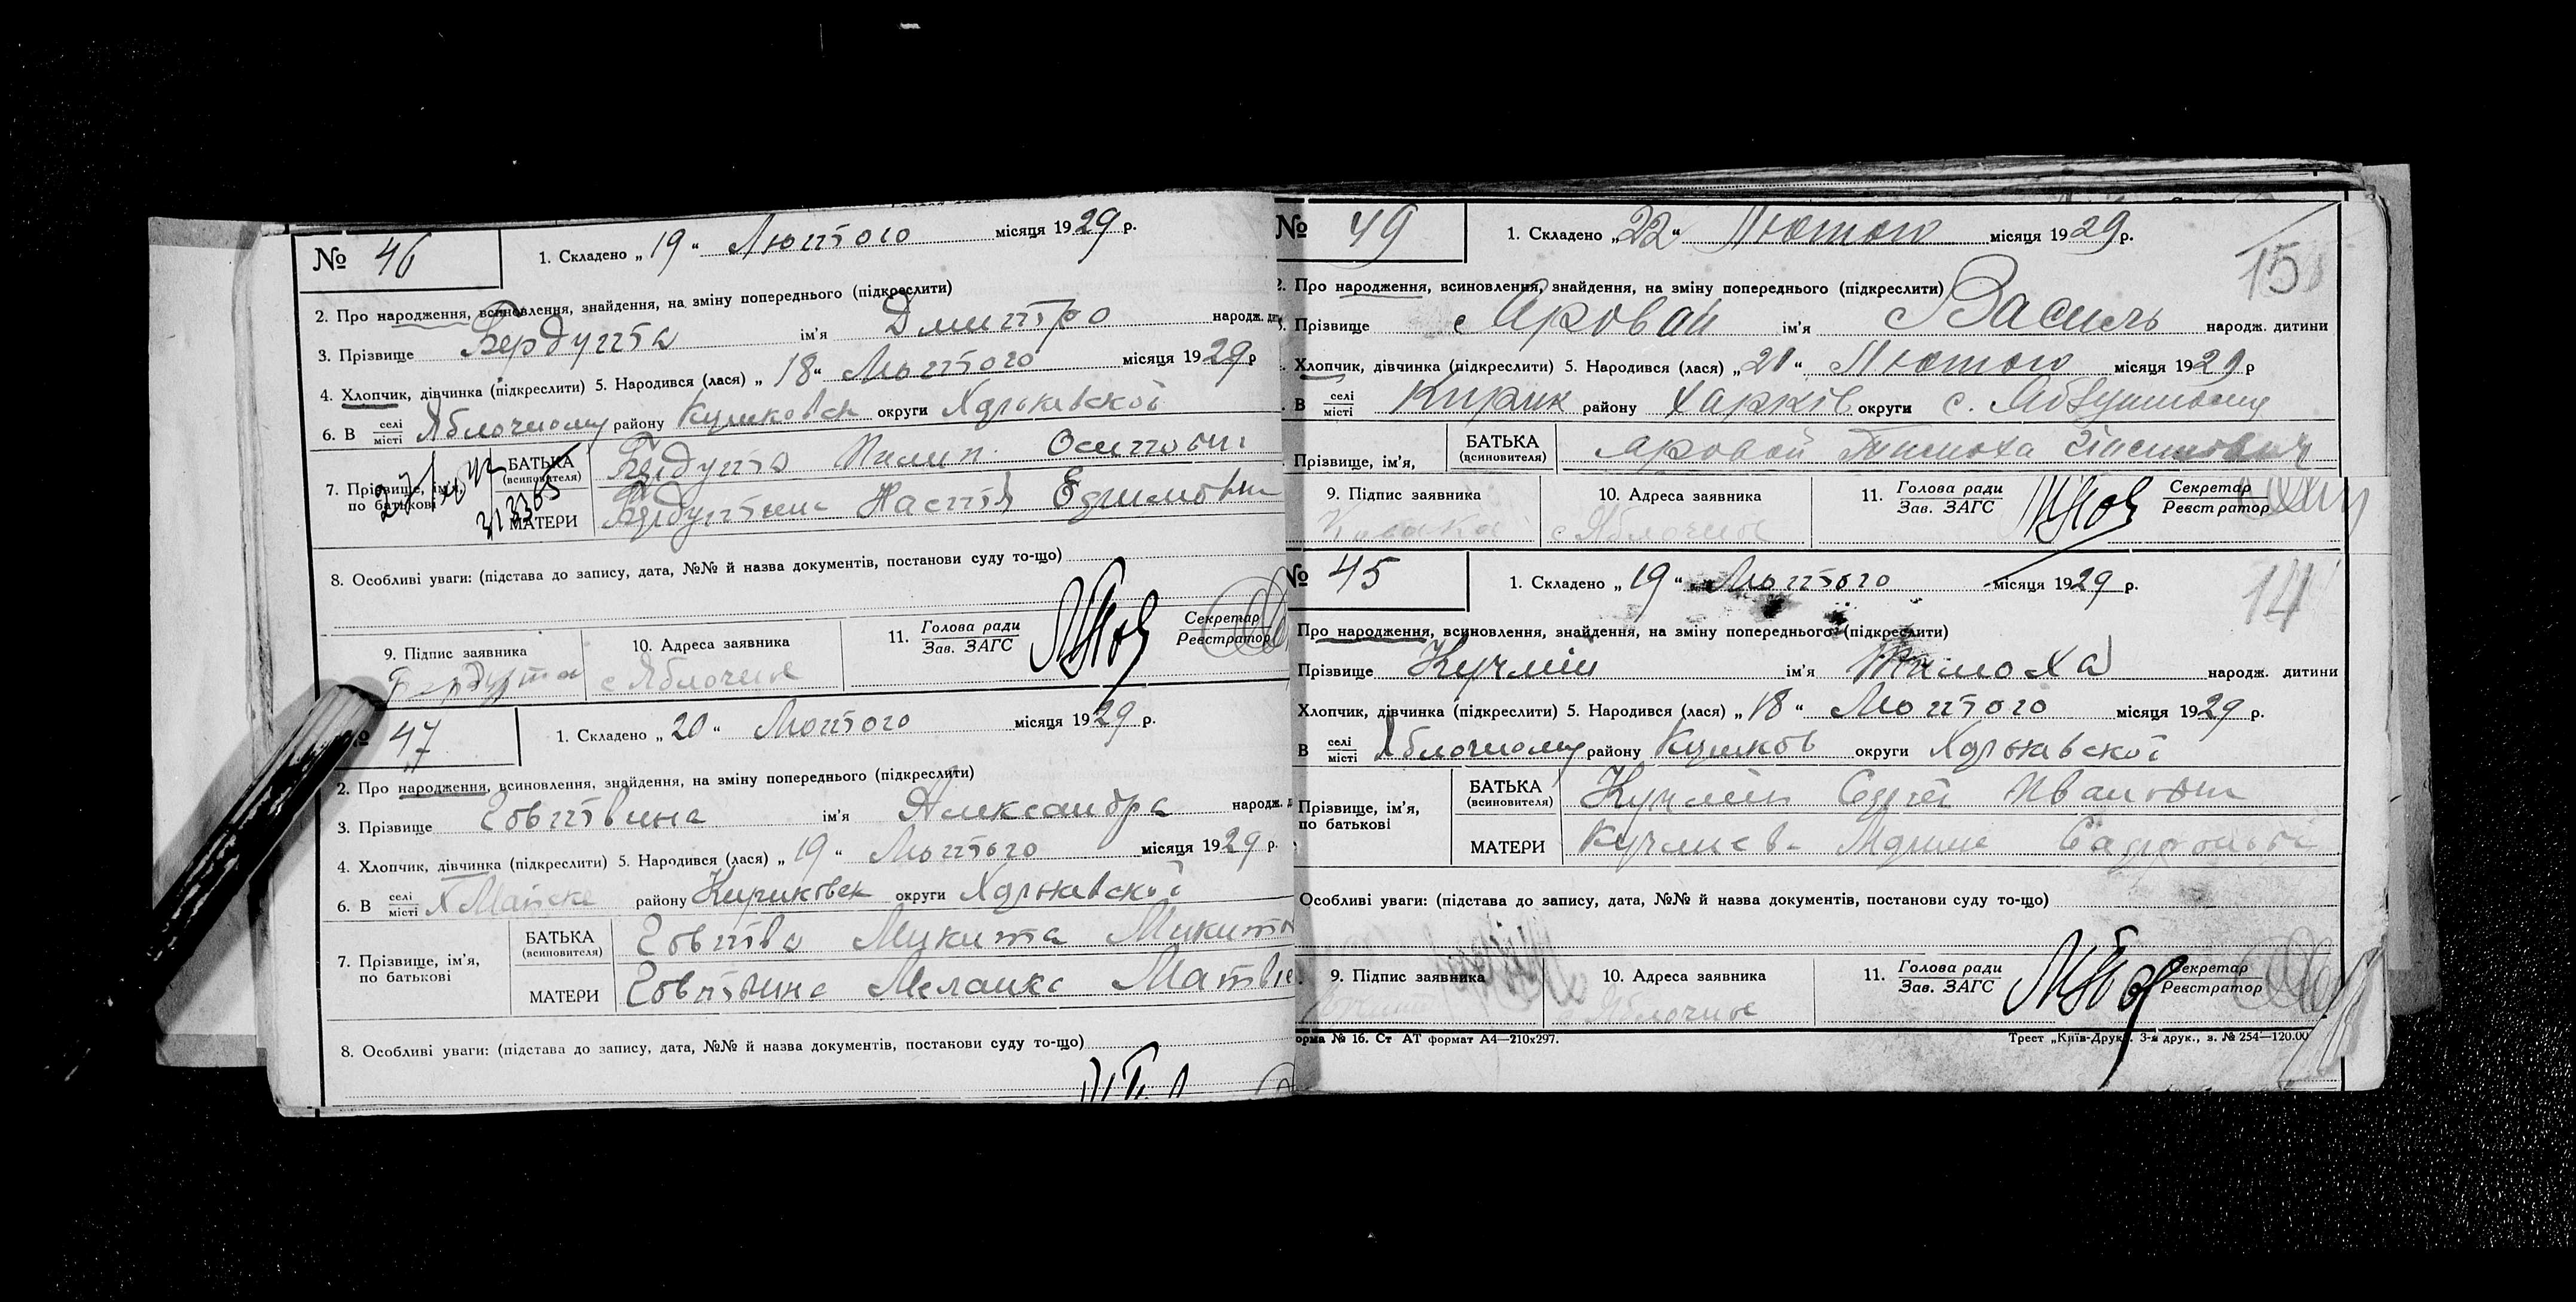 № 46 1. Складено „19“ Лютого місяця 1929 р.
2. Про народження, всиновлення, знайдення, на зміну попереднього (підкреслити)
3. Прізвище Бердута ім'я Дмитро народж.
4. Хлопчик, дівчинка (підкреслити) 5. Народився (лася) „18“ Лютого місяця 1929 р
6. В селі місті Яблочному району округи Харькавської
7. Прізвище, ім'я, по батькові БАТЬКА (всиновителя) Бердута Пилип
МАТЕРИ Настя
8. Особливі уваги: (підстава до запису, дата, №№ й назва документів, постанови суду то-що)
9. Підпис заявника Бердута 10. Адреса заявника с Яблочне 11. Голова ради Зав. ЗАГС Секретар Реєстратор
№ 47 1. Складено „20“ Лютого місяця 1929 р.
2. Про народження, всиновлення, знайдення, на зміну попереднього (підкреслити)
3. Прізвище Говтвина ім'я Александра народж.
4. Хлопчик, дівчинка (підкреслити) 5. Народився (лася) „19“ Лютого місяця 1929 р.
6. В селі місті х Майске району Кириковск округи Харькавської
7. Прізвище, ім'я, по батькові БАТЬКА (всиновителя) Говтва Микита
МАТЕРИ Говтвина Меланка
8. Особливі уваги: (підстава до запису, дата, №№ й назва документів, постанови суду то-що)
№ 49 1. Складено „22“ Лютого місяця 1929 р.
15
2. Про народження, всиновлення, знайдення, на зміну попереднього (підкреслити)
Прізвище Яровай ім'я Василь народж. дитини
Хлопчик, дівчинка (підкреслити) 5. Народився (лася) „21“ Лютого місяця 1929 р
В селі місті Кирик району Харків округи с.
Прізвище, ім'я, БАТЬКА (всиновителя) Яровой Тимоха
9. Підпис заявника 10. Адреса заявника с Яблочне 11. Голова ради Зав. ЗАГС Секретар Реєстратор
№ 45 1. Складено „19“ Лютого місяця 1929 р.
14
Про народження, всиновлення, знайдення, на зміну попереднього (підкреслити)
Прізвище Кучмій ім'я Тимоха народж. дитини
Хлопчик, дівчинка (підкреслити) 5. Народився (лася) „18“ Лютого місяця 1929 р.
В селі місті Яблочному району округи Харькавської
Прізвище, ім'я, по батькові БАТЬКА (всиновителя) Кучмій Сергей
МАТЕРИ
Особливі уваги: (підстава до запису, дата, №№ й назва документів, постанови суду то-що)
9. Підпис заявника 10. Адреса заявника с Яблочне 11. Голова ради Зав. ЗАГС Секретар Реєстратор
орма № 16. Ст АТ формат А4—210х297. Трест „Київ-Друк“. 3-я друк., з. № 254—120.00